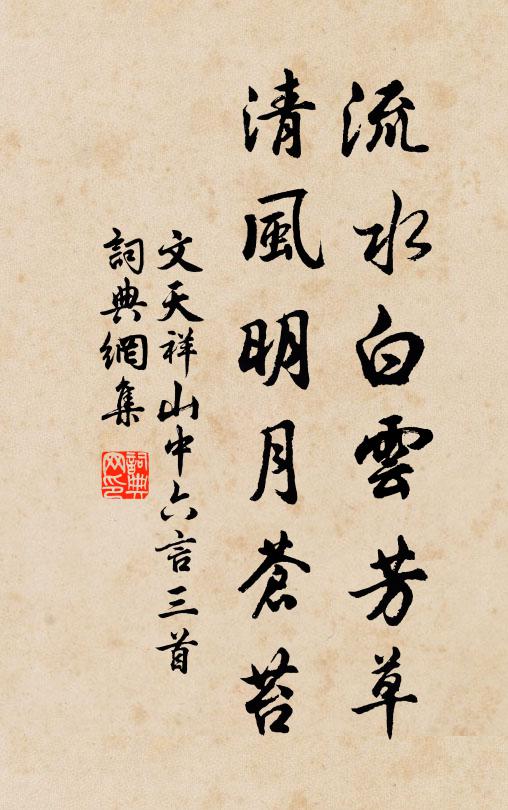 流水白雲芳草
清風明月蒼苔
文天祥山中六言三首
詞典網集
詞典網印